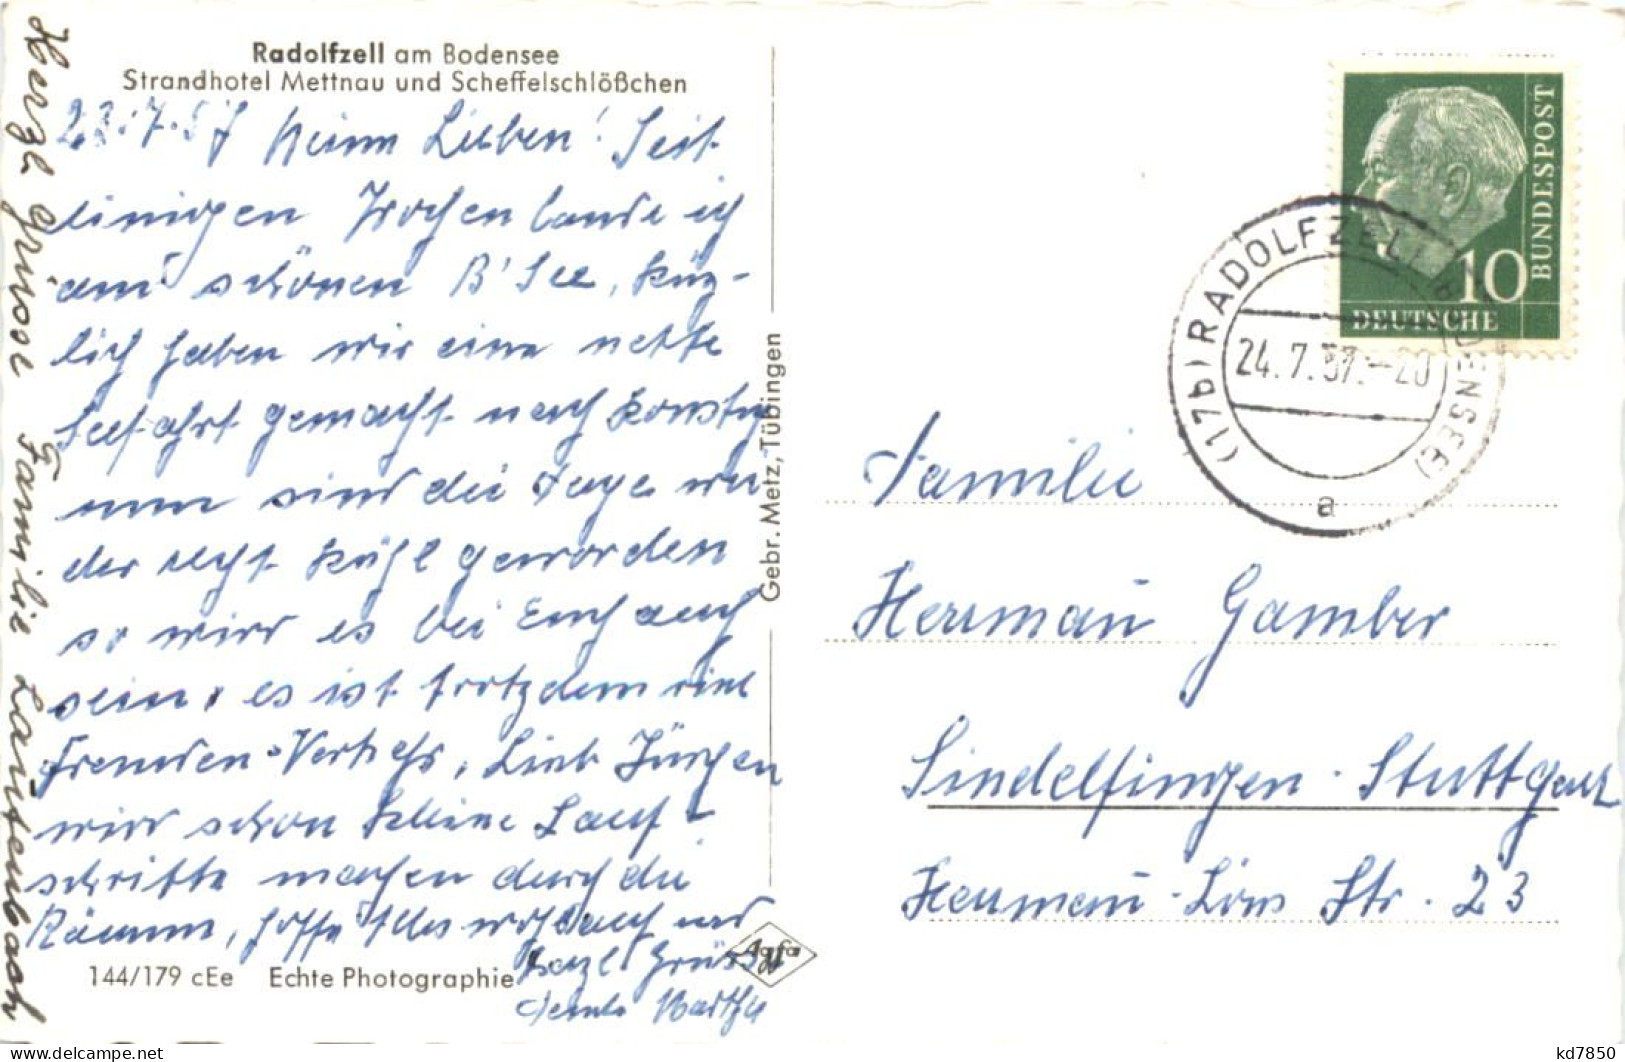 Radolfzell am Bodensee
Strandhotel Mettnau und Scheffelschlößchen
23.7.57 Meine Lieben! Seit
einigen Wochen lande ich
am schönen B'See, kürz-
lich haben wir eine nette
Seefahrt gemacht nach Konstz
nun sind die Tage wie
der recht kühl geworden
so wird es bei Euch auch
sein, es ist trotzdem viel
Fremden-Verkehr, Jürgen
wird schon kleine Lauf-
schritte machen durch die
Räume, hoffe Alles wohlauf und
herzl. Grüsse
Martha
Herzl Grüsse Familie Lautenbach
144/179 cEe Echte Photographie
Agfa
Gebr. Metz, Tübingen
BUNDESPOST
10
DEUTSCHE
(17b) RADOLFZELL (BODENSEE)
24.7.57.-20
a
Familie
Hermann Gamber
Sindelfingen - Stuttgart
Hermann-Löns Str. 23
kd7850